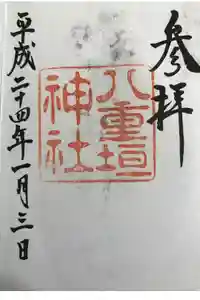 参拝
八重垣
神社
平成二十四年一月三日